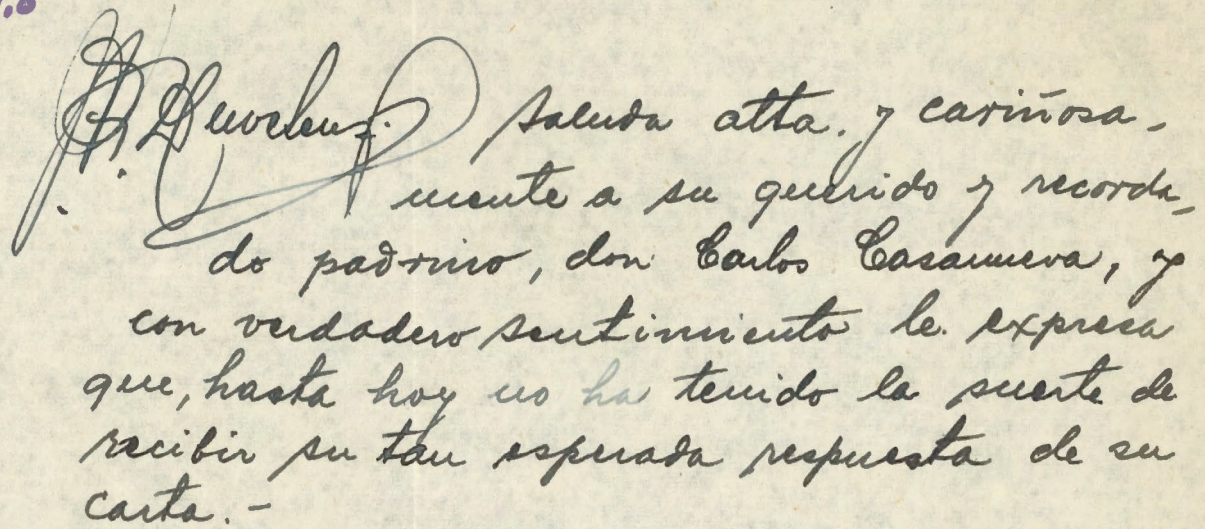 saluda atta. y cariñosa-
mente a su querido y recorda-
do padrino, don Carlos Casanueva, y
con verdadero sentimiento le expresa
que, hasta hoy no ha tenido la suerte de
recibir su tan esperada respuesta de su
carta.-